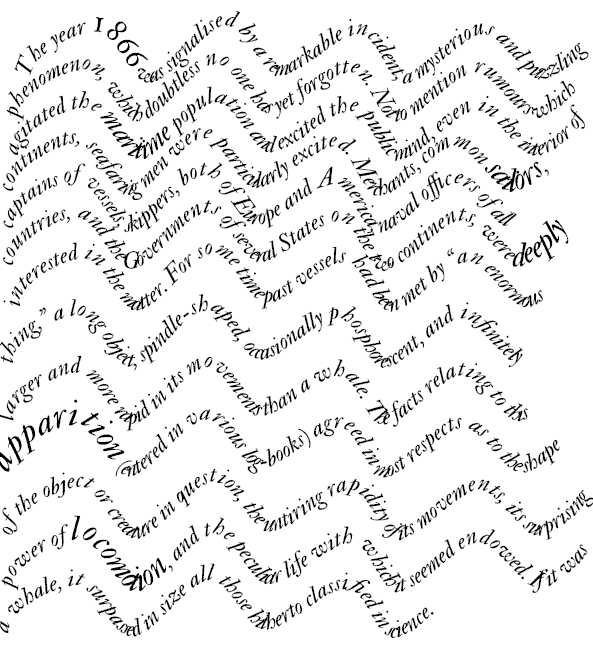 The year 1866 was signalised by a remarkable incident, a mysterious and puzzling
phenomenon, which doubtless no one has yet forgotten. Not to mention rumours which
agitated the maritime population and excited the public mind, even in the interior of
continents, seafaring men were particularly excited. Merchants, common sailors,
captains of vessels, skippers, both of Europe and America, naval officers of all
countries, and the Governments of several States on the two continents, were deeply
interested in the matter. For some time past vessels had been met by "an enormous
thing," a long object, spindle-shaped, occasionally phosphorescent, and infinitely
larger and more rapid in its movements than a whale. The facts relating to this
apparition (entered in various log-books) agreed in most respects as to the shape
of the object or creature in question, the untiring rapidity of its movements, its surprising
power of locomotion, and the peculiar life with which it seemed endowed. If it was
a whale, it surpassed in size all those hitherto classified in science.